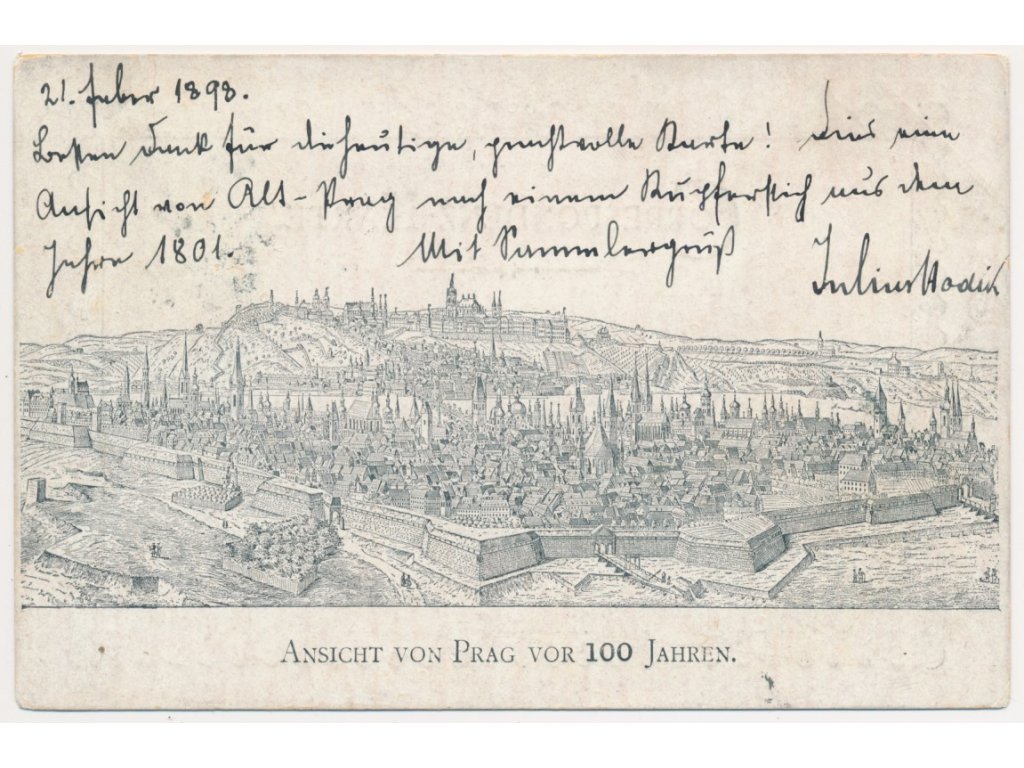 21. Feber 1898.
Besten Dank für die heutige, prachtvolle Karte! Dies eine
Ansicht von Alt-Prag nach einem Kupferstich aus dem
Jahre 1801. Mit Sammlergruß Julius
ANSICHT VON PRAG VOR 100 JAHREN.